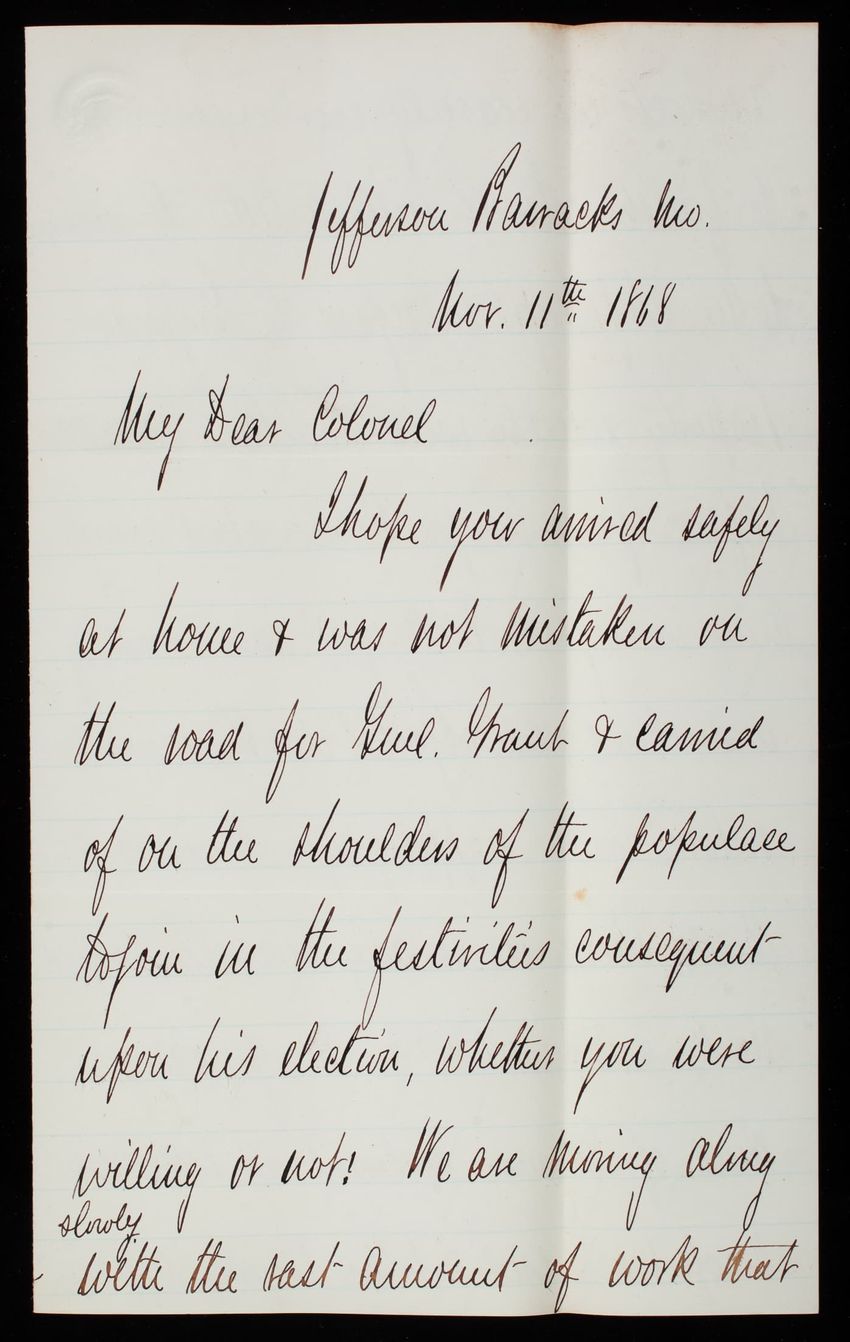 Jefferson Barracks Mo.
Nov. 11th 1868
My Dear Colonel
I hope you arrived safely
at home & was not mistaken on
the road for Genl. Grant & carried
of on the shoulders of the populace
to join in the festivities consequent
upon his election, whether you were
willing or not! We are moving along
slowly
with the vast amount of work that